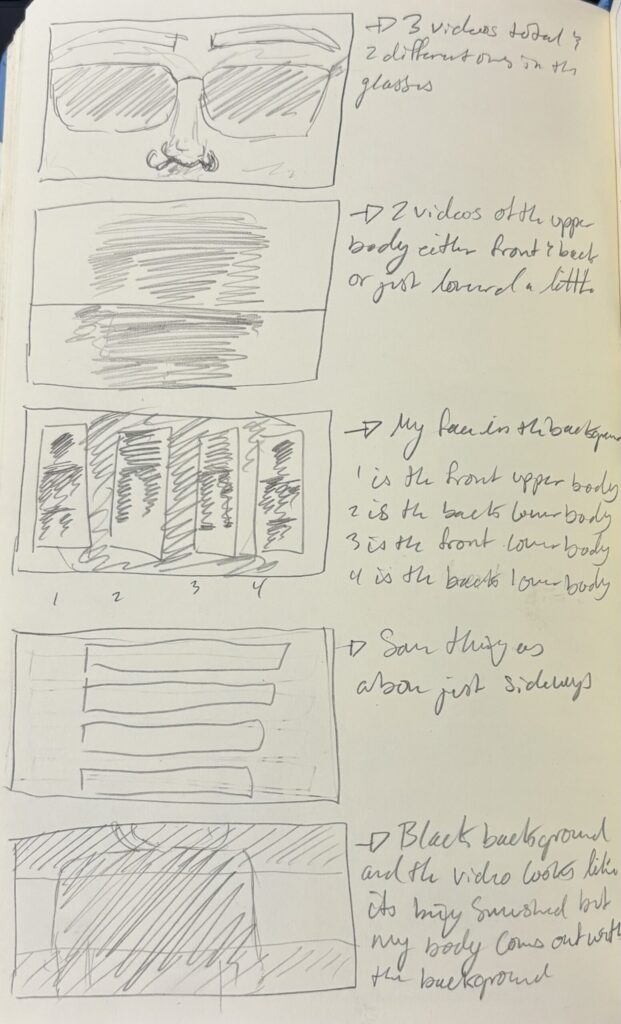 → 3 videos total &
2 different ones in the
glasses
→ 2 videos of the upper
body either front & back
or just lowered a little
→ My face in the background
1 is the front upper body
2 is the back lower body
3 is the front lower body
4 is the back lower body
1 2 3 4
→ Same thing as
above just sideways
→ Black background
and the video looks like
its being smushed but
my body comes out with
the background